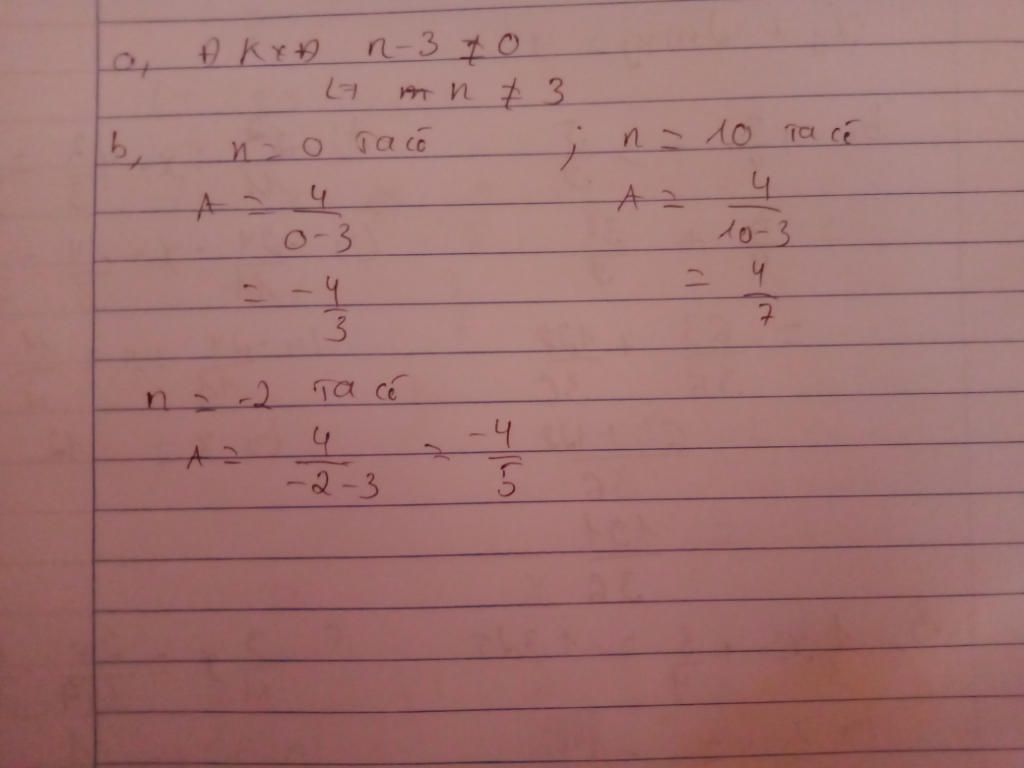 a, ĐKXĐ n-3 ≠ 0
<=> n ≠ 3
b, n = 0 ta có ; n = 10 ta có
A = 4/(0-3) A = 4/(10-3)
= -4/3 = 4/7
n = -2 ta có
A = 4/(-2-3) = -4/5